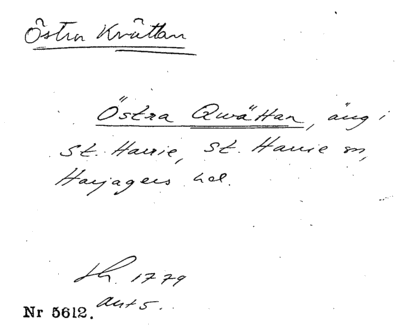 Östra Kvättan
Östra Qwättan, äng i
St. Harrie, St. Harrie sn,
Harjagers hd.
1779
ant 5.
Nr 5612.